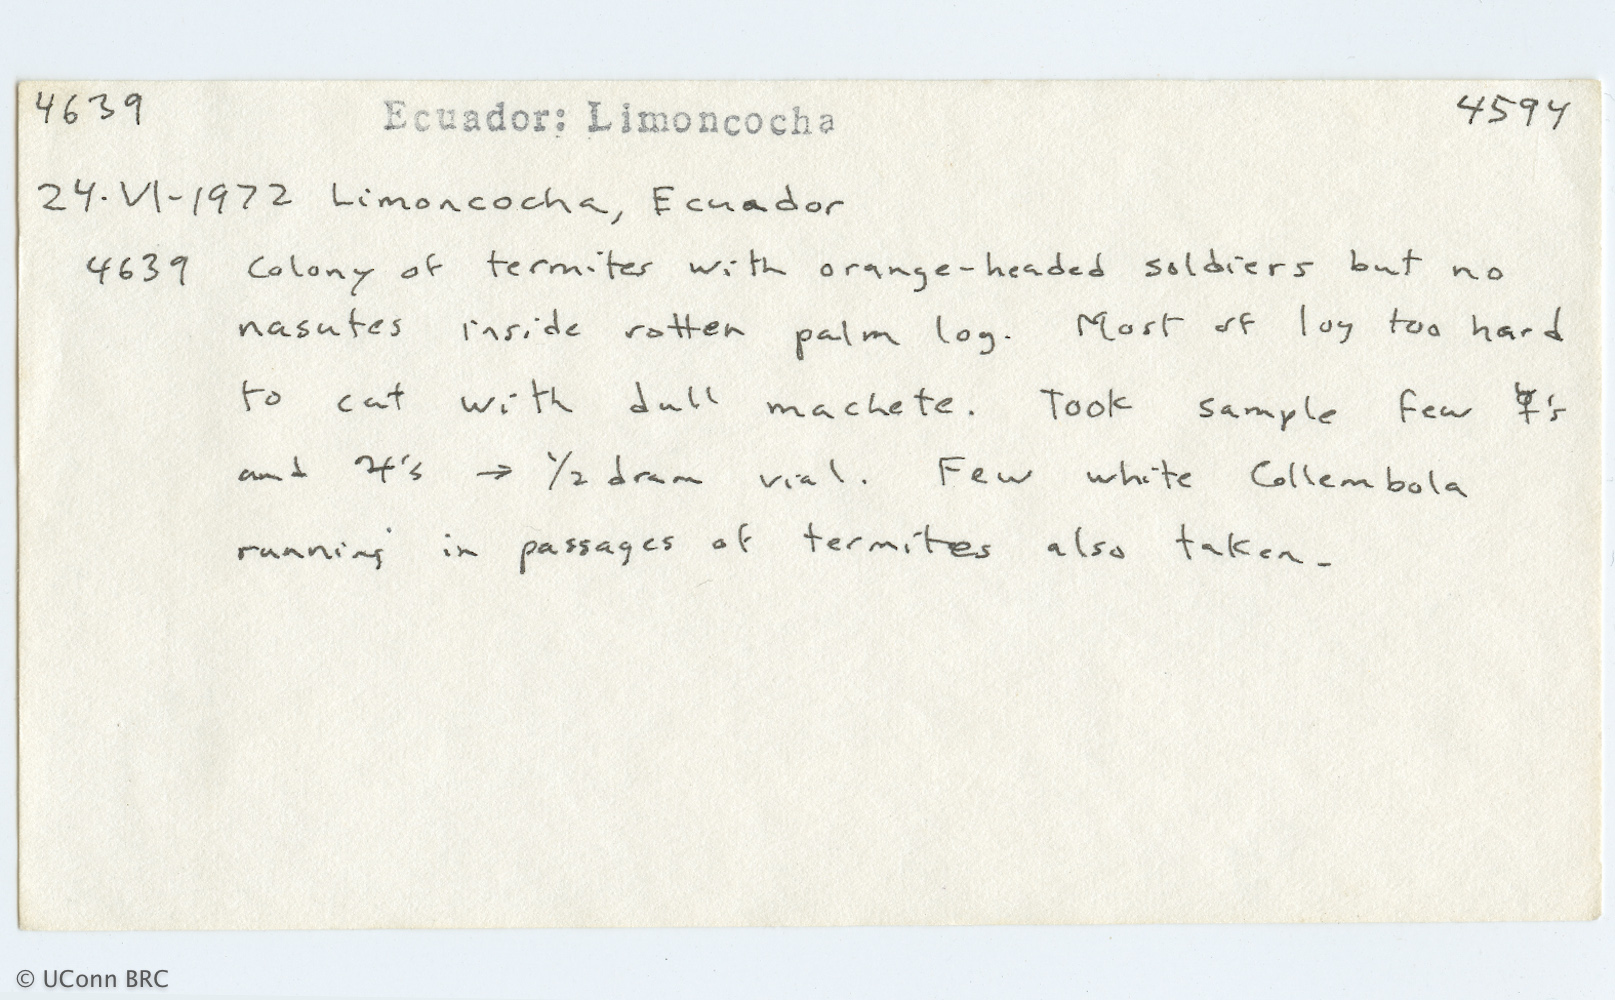 4639 Ecuador: Limoncocha 4594
24-VI-1972 Limoncocha, Ecuador
4639 Colony of termites with orange-headed soldiers but no
nasutes inside rotten palm log. Most of log too hard
to cut with dull machete. Took sample few ☿'s
and ♃'s → 1/2 dram vial. Few white Collembola
running in passages of termites also taken.
© UConn BRC